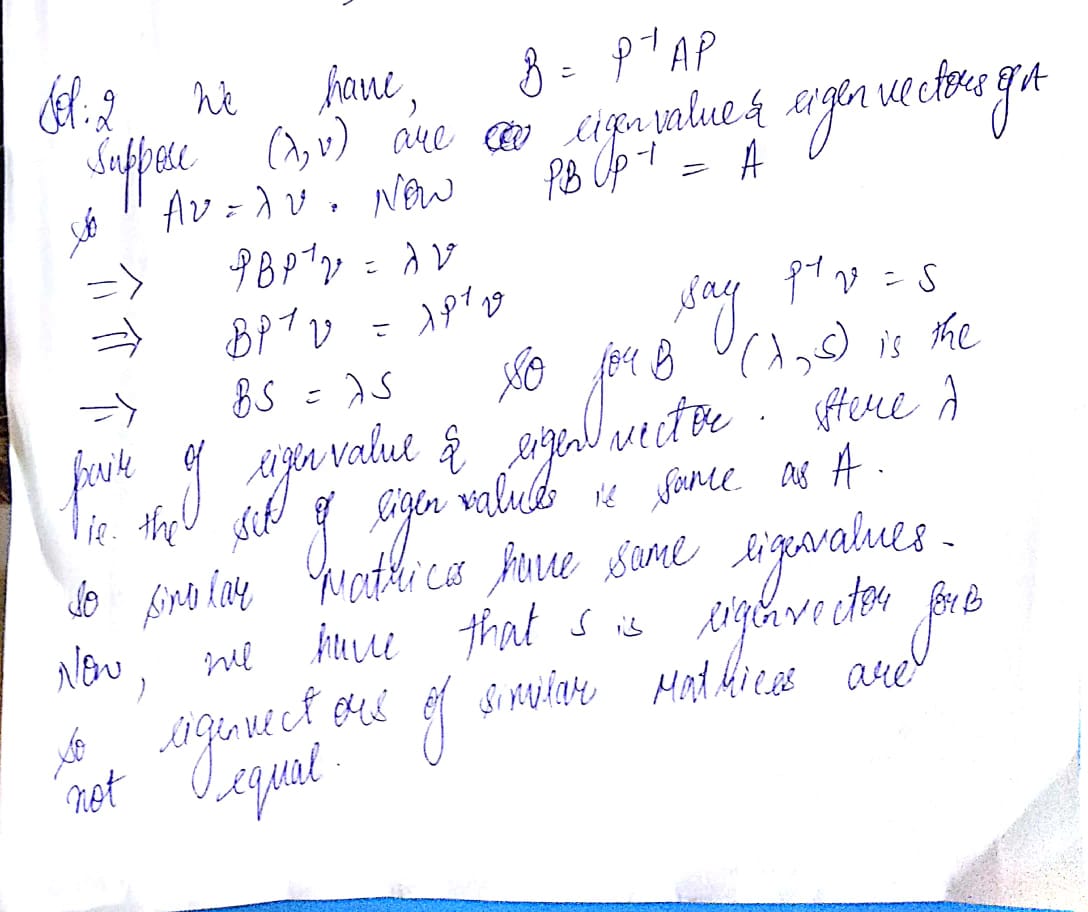 Sol: 2 We have, B = P⁻¹AP
Suppose (λ, v) are eigenvalue & eigen vectors of A
so Av = λv. Now PBP⁻¹ = A
=> PBP⁻¹v = λv
=> BP⁻¹v = λP⁻¹v say P⁻¹v = S
=> BS = λS so for B (λ, S) is the
pair of eigenvalue & eigen vector. Here λ
ie. the set of eigen values is same as A.
so similar Matrices have same eigenvalues.
Now, we have that S is eigenvector for B
so eigenvectors of similar Matrices are
not equal.